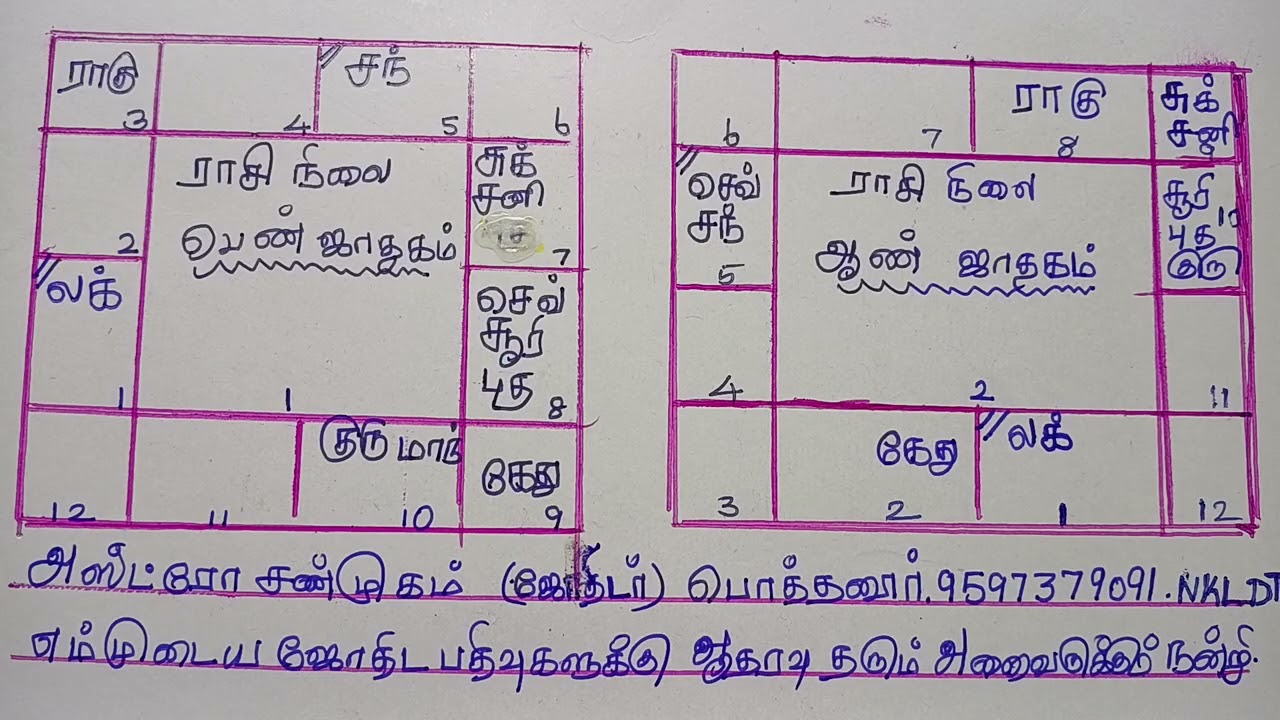 ராகு
3
4
சந்
5
6
2
லக்
1
ராசி நிலை
பெண் ஜாதகம்
1
சுக்
சனி
7
செவ்
சூரி
புத
8
12
11
குரு மாந்
10
கேது
9
6
7
ராகு
8
சுக்
சனி
9
செவ்
சந்
5
4
ராசி நிலை
ஆண் ஜாதகம்
2
சூரி
புத 10
குரு
11
3
கேது
2
லக்
1
12
அஸ்ட்ரோ சண்முகம் (ஜோதிடர்) பொத்தனூர். 9597379091. NKLDT
எம்முடைய ஜோதிட பதிவுகளுக்கு ஆதரவு தரும் அனைவருக்கும் நன்றி.